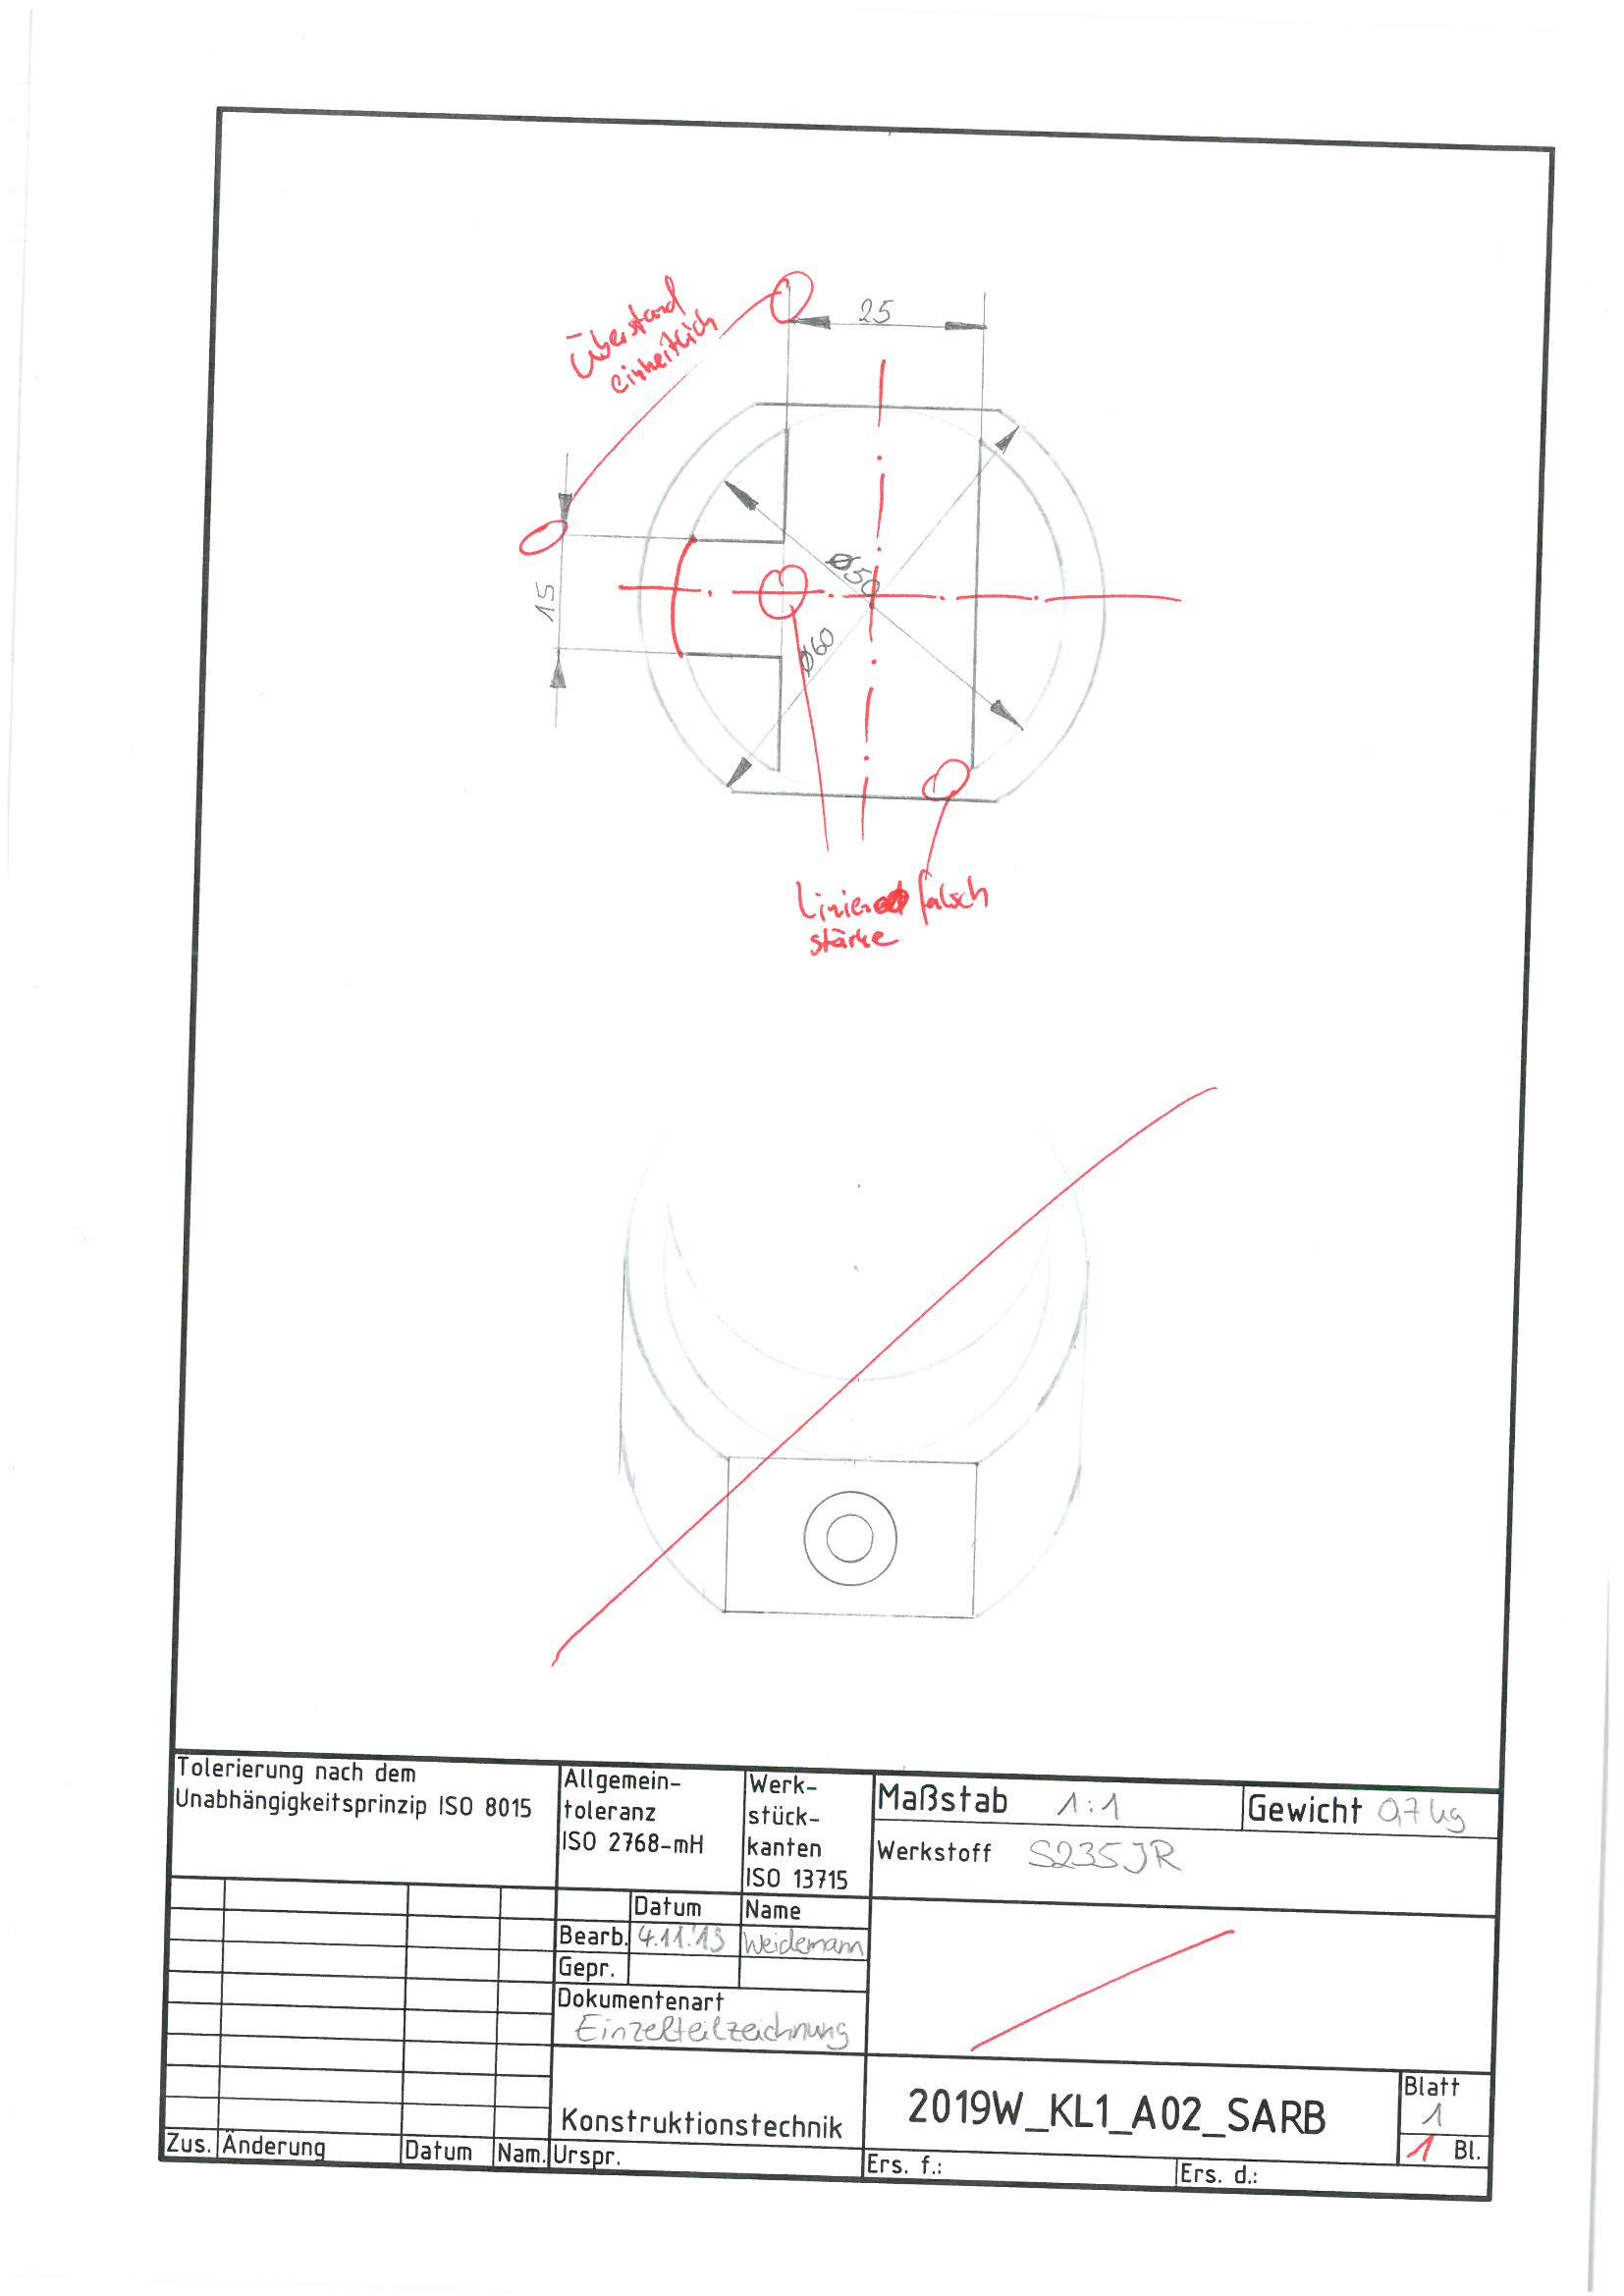 Überstand
einheitlich
25
Ø50
15
Ø60
Linien falsch
stärke
Tolerierung nach dem
Unabhängigkeitsprinzip ISO 8015
Allgemein-
toleranz
ISO 2768-mH
Werk-
stück-
kanten
ISO 13715
Maßstab 1:1
Gewicht 0,7 kg
Werkstoff S235JR
Datum Name
Bearb. 4.11.'13 Weidemann
Gepr.
Dokumentenart
Einzelteilzeichnung
Konstruktionstechnik
2019W_KL1_A02_SARB
Blatt
1
1 Bl.
Zus. Änderung Datum Nam. Urspr. Ers. f.: Ers. d.: